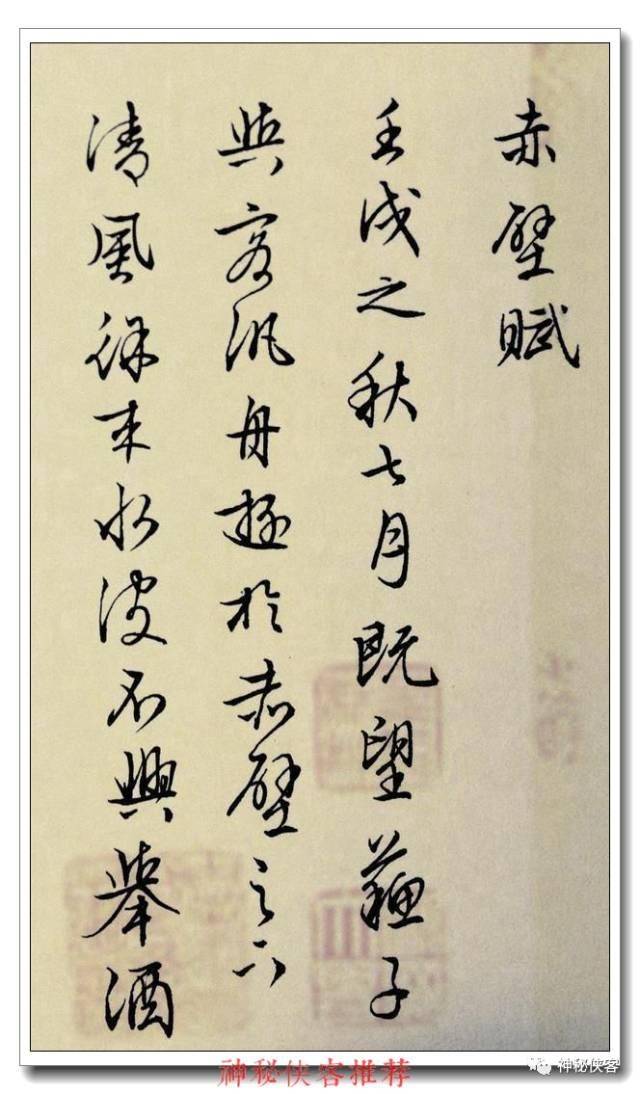 赤壁賦
壬戌之秋七月既望蘇子
與客泛舟遊於赤壁之下
清風徐来水波不興舉酒
神秘侠客推荐
神秘侠客